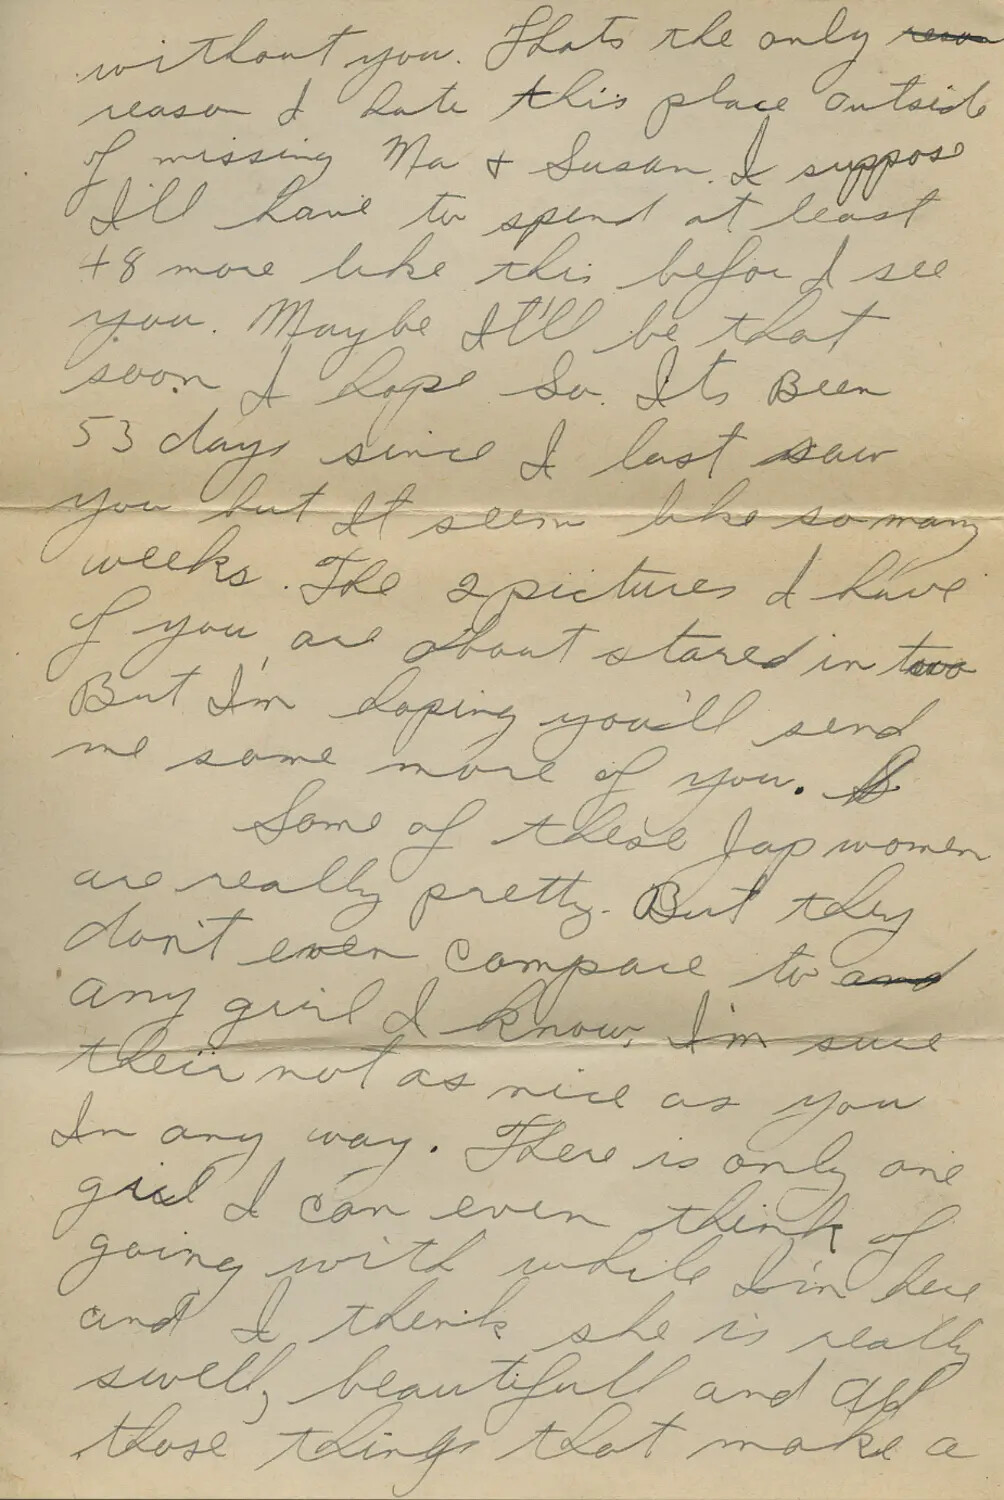 without you. Thats the only reason
reason I hate this place outside
of missing Ma & Susan. I suppose
I'll have to spend at least
48 more like this befor I see
you. Maybe It'll be that
soon I hope So. Its Been
53 days since I last saw
you but It seem like so many
weeks. The 2 pictures I have
of you are about stared in two
But I'm hoping you'll send
me some more of you.
Some of these Jap women
are really pretty. But they
don't even compare to and
any girl I know, I'm sure
their not as nice as you
In any way. There is only one
girl I can even think of
going with while I'm here
and I think she is really
swell, beautifull and all
those things that make a